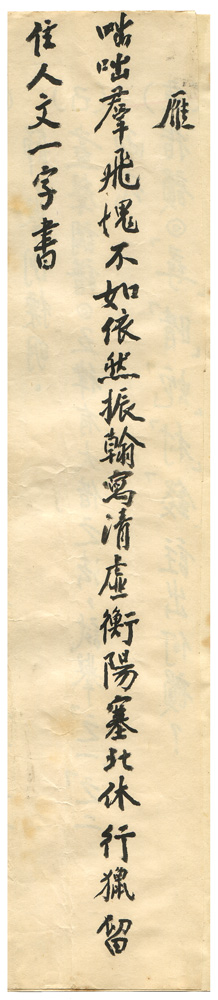 雁
咄咄羣飛愧不如依然振翰寫清虛衡陽塞北休行獵留
住人文一字書